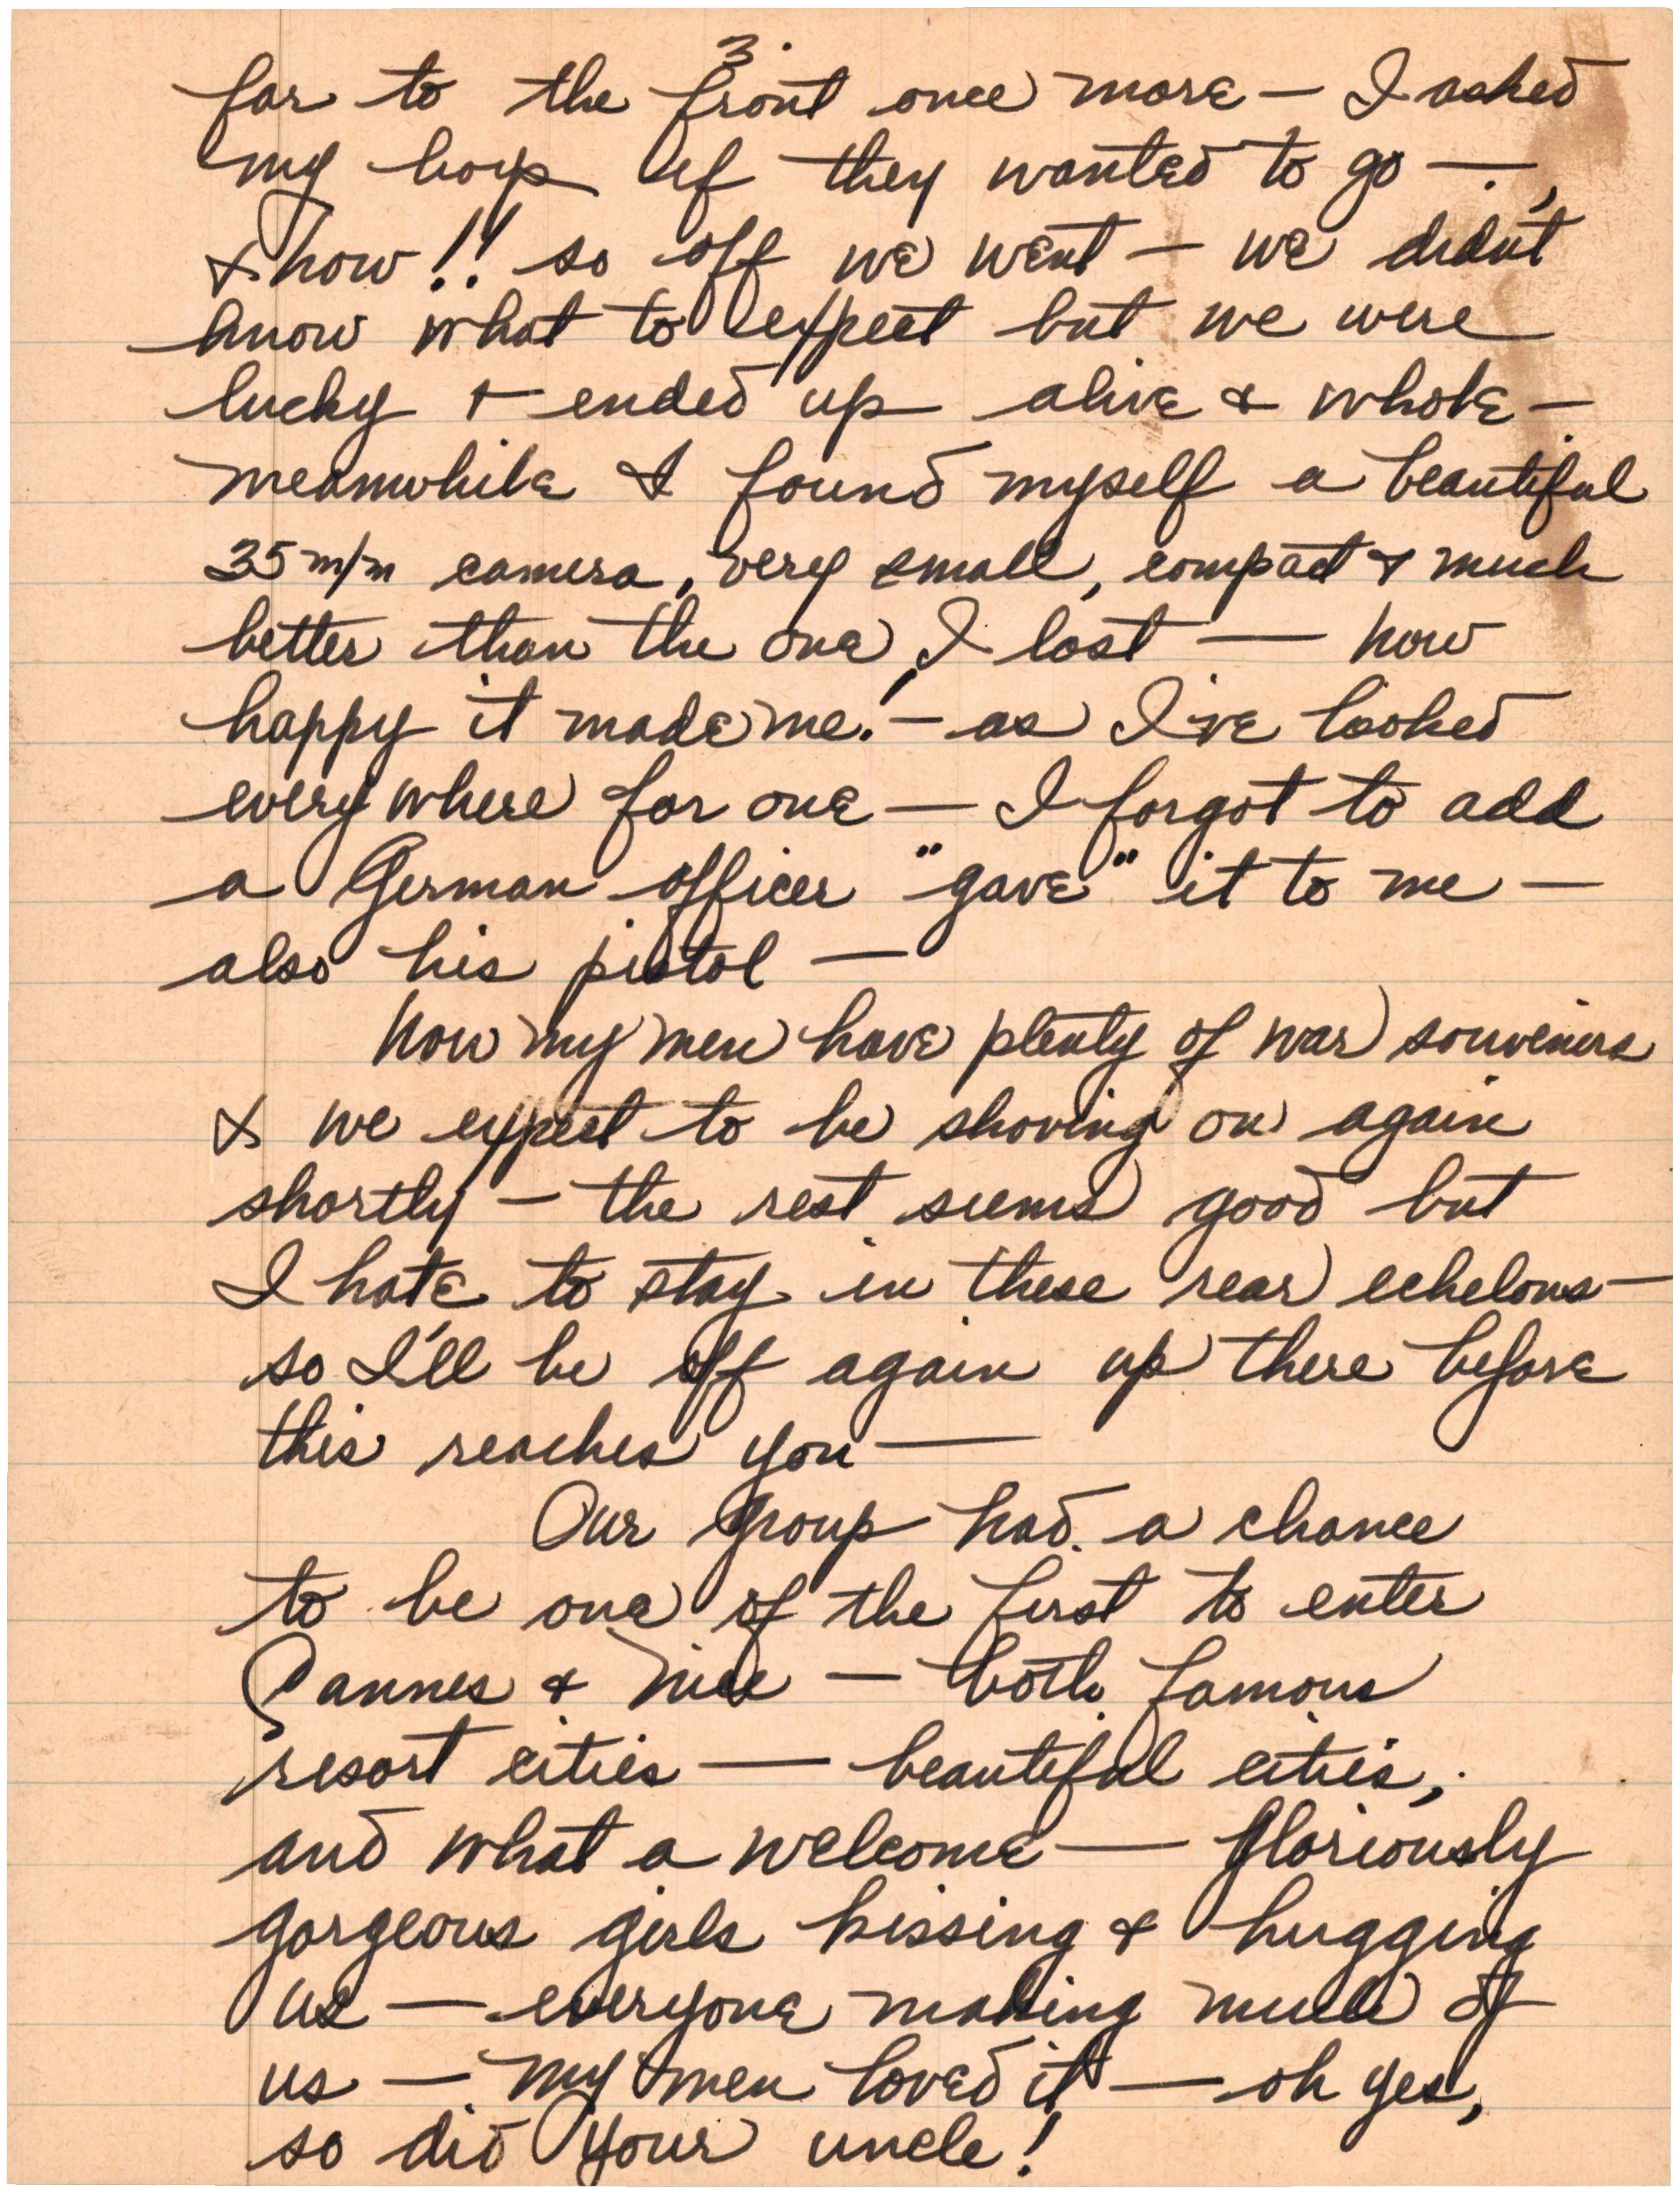 3.
far to the front once more — I asked
my boys if they wanted to go — .,
& how!! so off we went — we didn't
know what to expect but we were
lucky & ended up alive & whole —
meanwhile I found myself a beautiful
35 m/m camera, very small, compact & much
better than the one I lost — how
happy it made me! — as I've looked
everywhere for one — I forgot to add
a German officer "gave" it to me —
also his pistol —
Now my men have plenty of war souvenirs
& we expect to be shoving on again
shortly — the rest seems good but
I hate to stay in these rear echelons —
so I'll be off again up there before
this reaches you —
Our group had a chance
to be one of the first to enter
Cannes & Nice — both famous
resort cities — beautiful cities,
and what a welcome — Gloriously
gorgeous girls kissing & hugging
us — everyone making much of
us — my men loved it — oh yes,
so did your uncle!